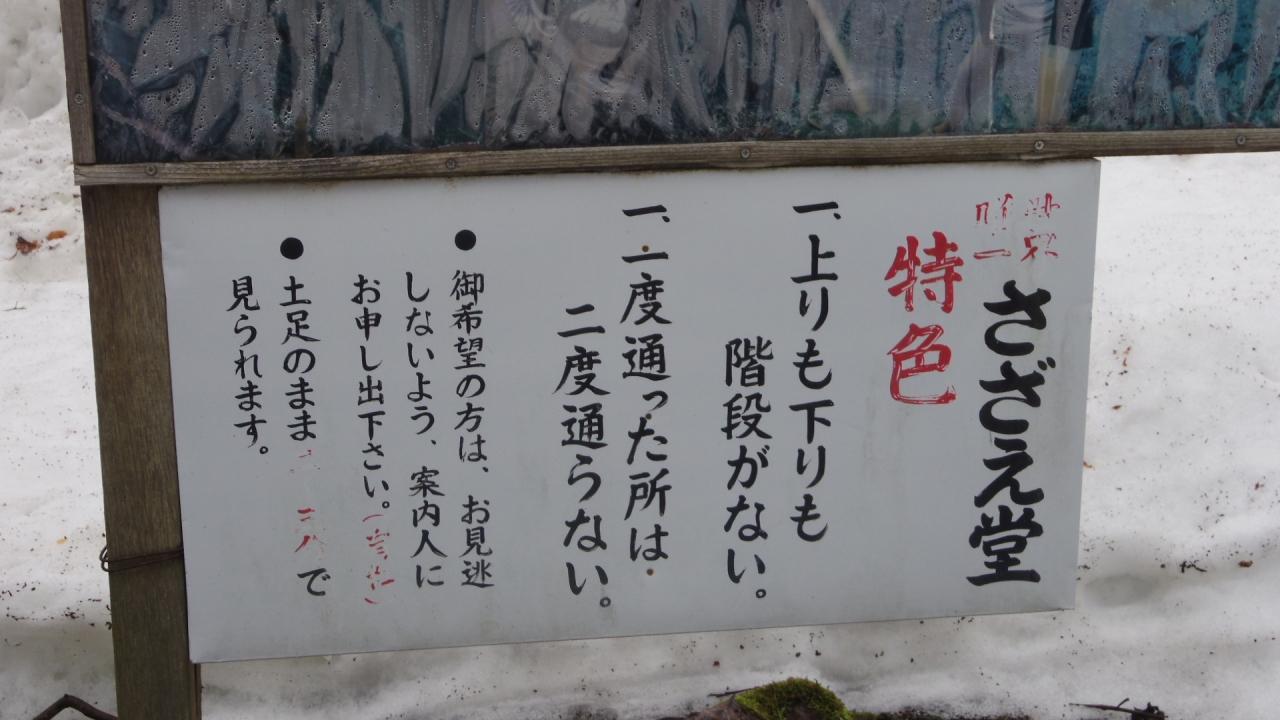 世界
唯一
さざえ堂
特色
一、上りも下りも
階段がない。
一、一度通った所は
二度通らない。
●御希望の方は、お見逃
しないよう、案内人に
お申し出下さい。
●土足のまま
で
見られます。